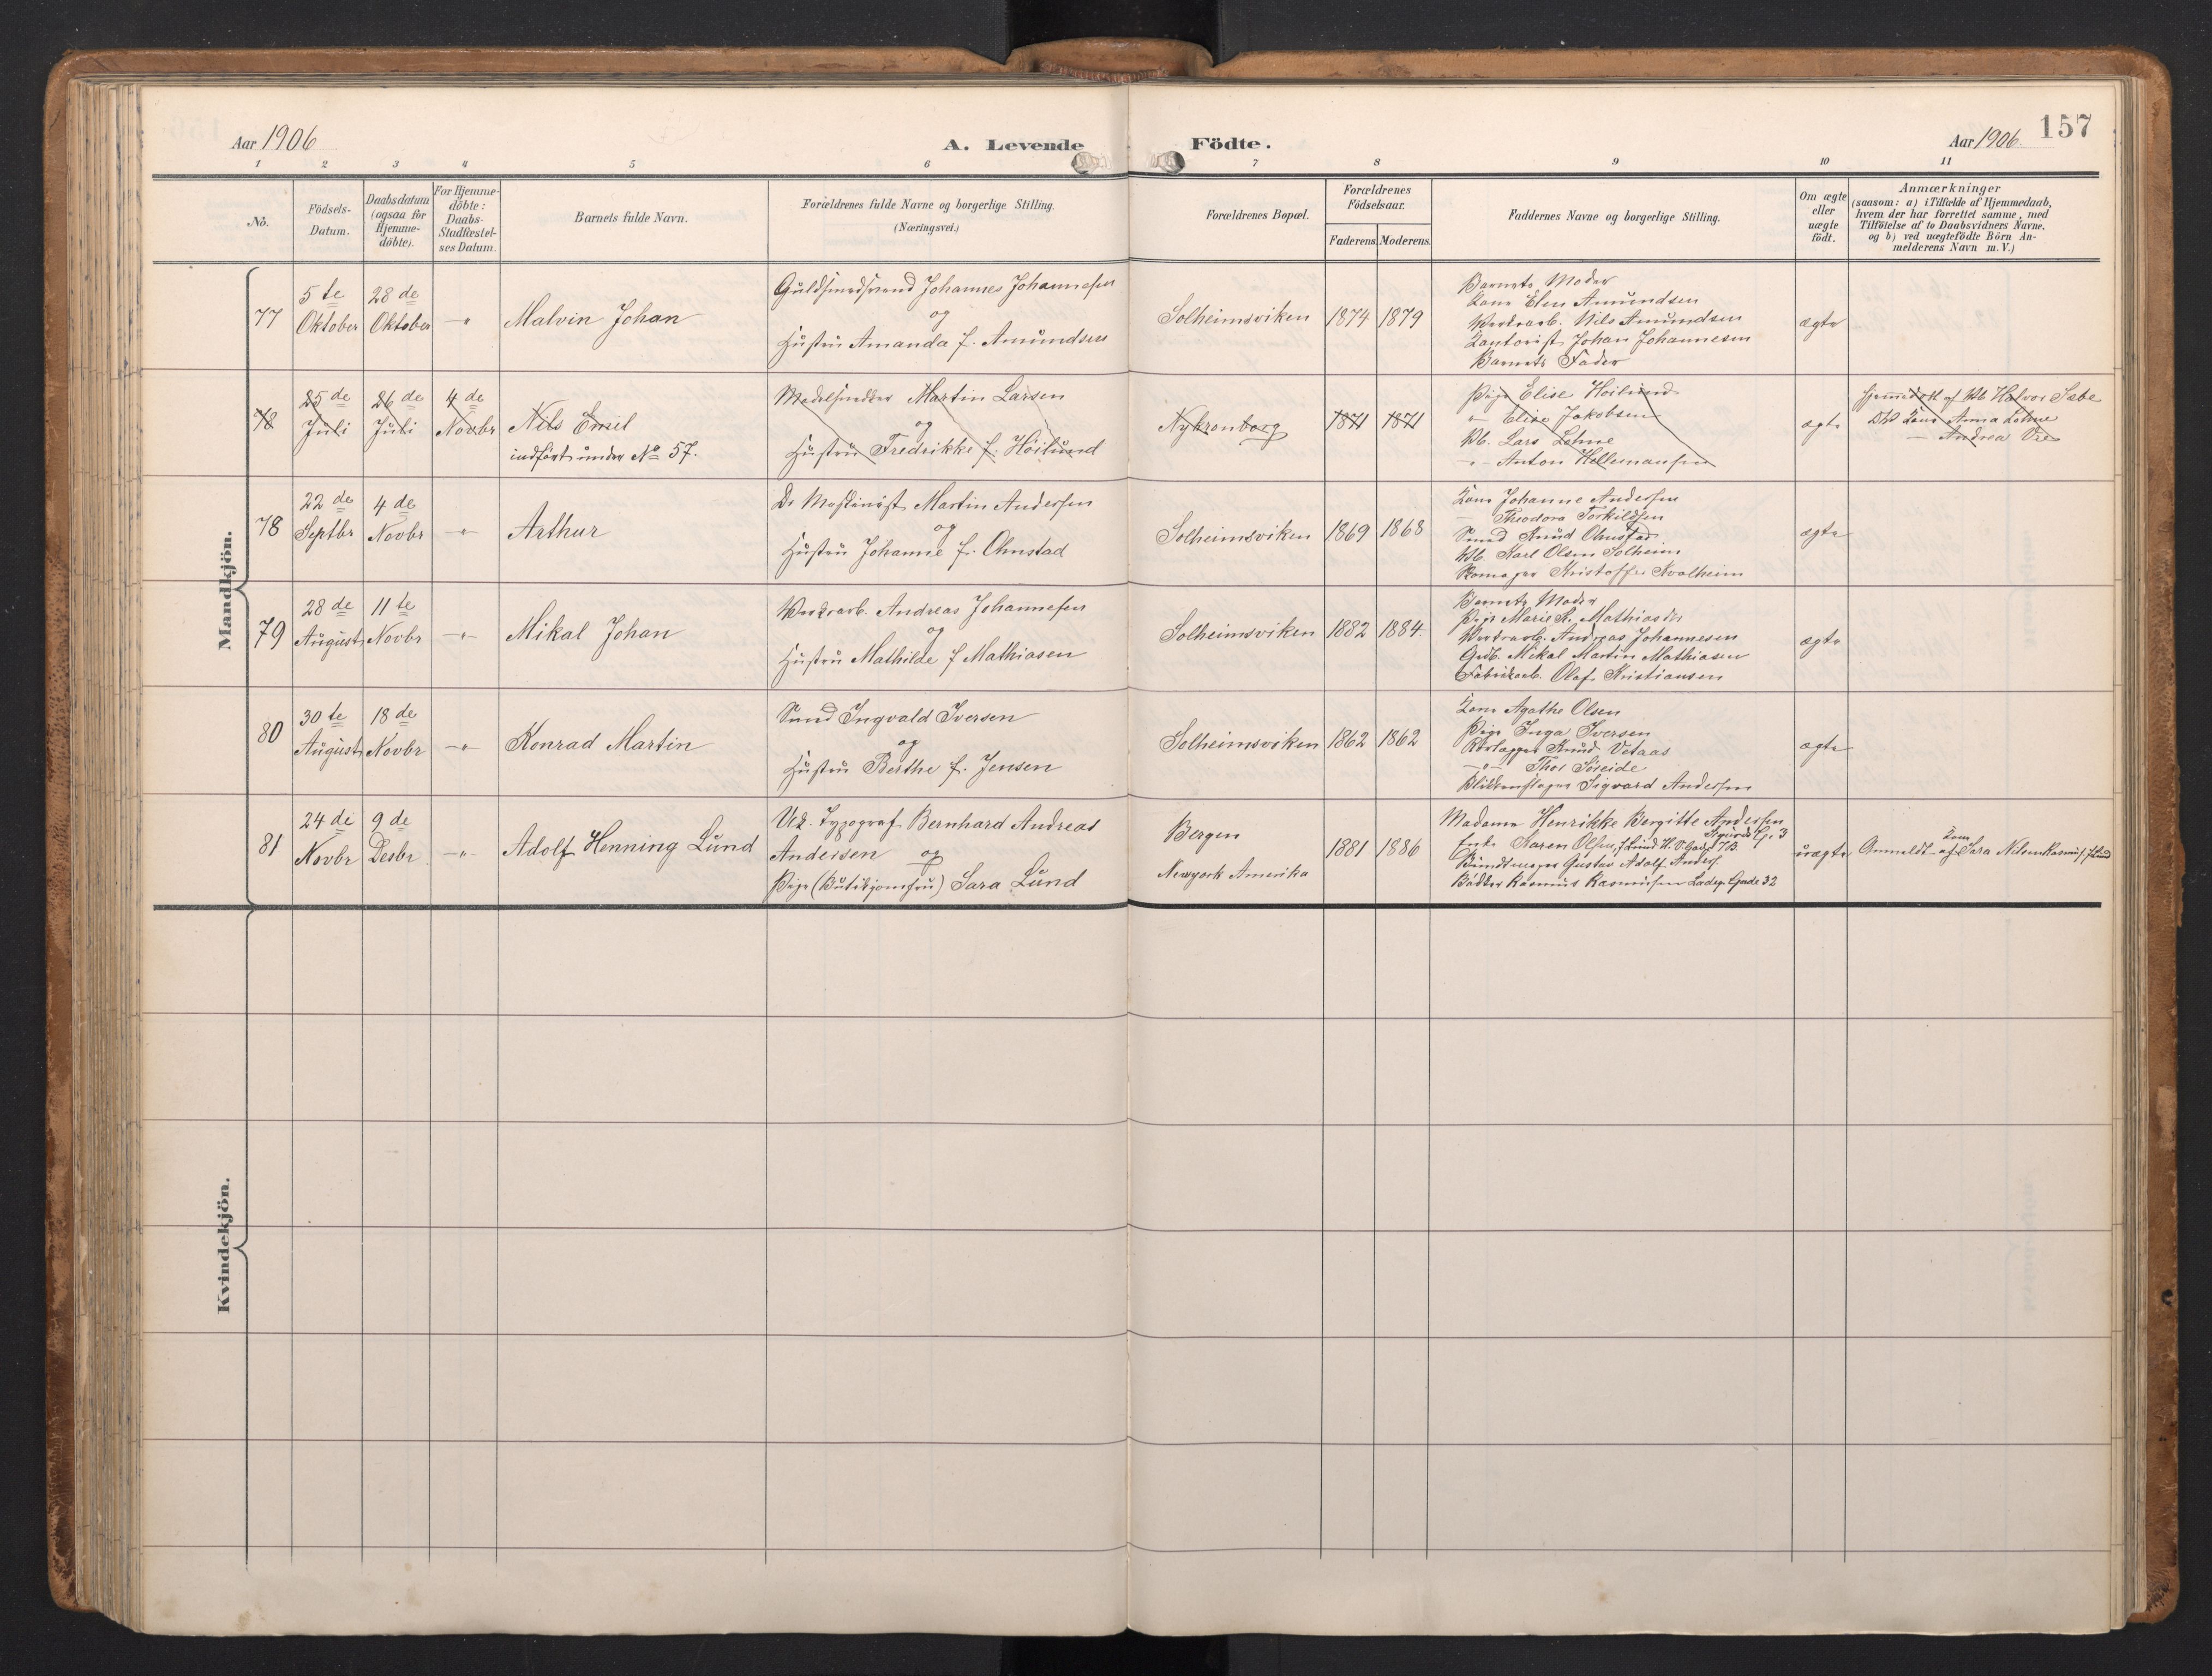 Aar 1906
A. Levende
Födte.
Aar 1906.
157
1 2 3 4 5 6 7 8 9 10 11
No.
Födsels-
Datum.
Daabsdatum
(ogsaa for
Hjemme-
döbte).
For Hjemme-
döbte:
Daabs-
Stadfæstel-
ses Datum.
Barnets fulde Navn.
Forældrenes fulde Navne og borgerlige Stilling.
(Næringsvei.)
Forældrenes Bopæl.
Forældrenes
Födselsaar.
Faderens. Moderens.
Faddernes Navne og borgerlige Stilling.
Om ægte
eller
uægte
födt.
Anmærkninger
(saasom: a) i Tilfælde af Hjemmedaab,
hvem der har forrettet samme, med
Tilföielse af to Daabsvidners Navne,
og b) ved uægtefödte Börn An-
melderens Navn m. V.)
Mandkjön.
77
5te
Oktober
28de
Oktober
-"-
Malvin Johan
Guldsmedsvend Johannes Johannesen
og
Hustru Amanda f. Amundsen
Solheimsviken
1874
1879
Barnets Moder
Kone Elen Amundsen
Verksarb. Nils Amundsen
Kontorist Johan Johannesen
Barnets Fader
ægte
78
25de
Juli
26de
Juli
4de
Novbr
Nils Emil
indført under No 57.
Modelsnedker Martin Larsen
og
Hustru Fredrikke f. Höilund
Nykronborg
1871
1871
Pige Elise Höilund
" Elise Jakobsen
Vb. Lars Lehne
-"- Anton Hellemansen
ægte
Hjemmedöbt af Vb Halvor Sabe
DV Kone Anna Lehne
— Andrea Vre
78
22de
Septbr
4de
Novbr
-"-
Arthur
Maskinist Martin Andersen
og
Hustru Johanne f. Olmstad
Solheimsviken
1869
1868
Kone Johanne Andersen
Theodora Torkildsen
Smed Knud Olmstad
Vb. Karl Olsen Solheim
Skomager Kristoffer Kvalheim
ægte
79
28de
August
11te
Novbr
-"-
Mikal Johan
Verksarb. Andreas Johannesen
og
Hustru Mathilde f Mathiasen
Solheimsviken
1882
1884.
Barnets Moder
Pige Marie K. Mathiasen
Verksarb. Andreas Johannesen
Mikal Martin Mathiasen
Fabrikarb. Olaf Kristiansen
ægte
80
30te
August
18de
Novbr
-"-
Konrad Martin
Smed Ingvald Iversen
og
Hustru Berthe f. Jensen
Solheimsviken
1862
1862
Kone Agathe Olsen
Pige Inga Iversen
Knud Vetaas
-"- Thor Søreide
Blikkenslager Sigvard Andersen
ægte
81
24de
Novbr
9de
Desbr
-"-
Adolf Henning Lund
Uk. Typograf Bernhard Andreas
Andersen og
Pige (Butikjomfru) Sara Lund
Bergen
Newyork Amerika
1881
1886
Madame Henrikke Bergitte Andersen
Sigurds G. 3
Enke Karen Olsen, f. Lund H. V. Gade 17B
Bundtmager Gustav Adolf Anders.
Bödker Rasmus Rasmusen Ladeg. Gade 32
uægte
Anmeldt af Kone Sara Nilsen Rasmus. f. Lund
Kvindekjön.